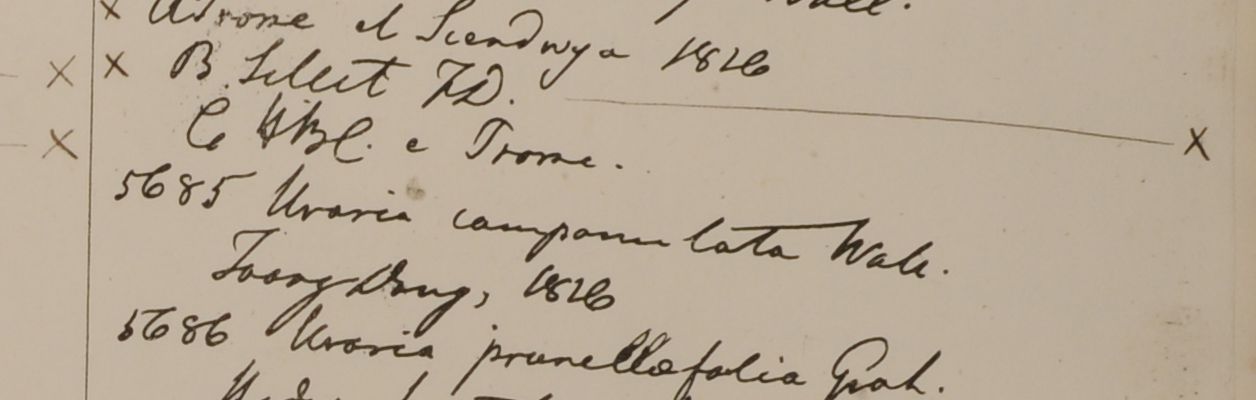 x A Prome et Segdwya 1826
x x B Sillet F.D. x
x C HBC. e Prome.
5685 Uraria campanulata Wall.
Taong Dong, 1826
5686 Uraria prunellæfolia Grah.